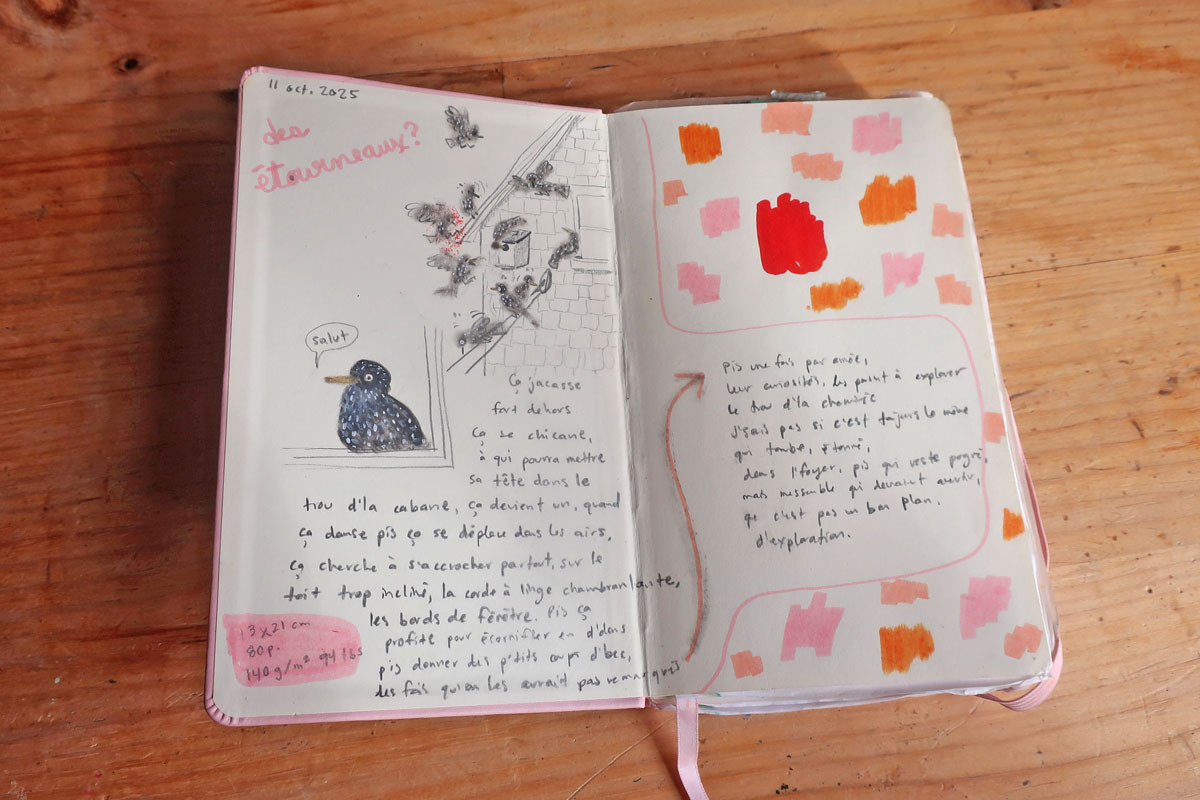 11 oct. 2025
des
étourneaux?
salut
Ça jacasse
fort dehors
Ça se chicane,
à qui pourra mettre
sa tête dans le
trou d'la cabane, ça devient un, quand
ça danse pis ça se déplace dans les airs,
ça cherche à s'accrocher partout, sur le
toit trop incliné, la corde à linge chambranlante,
les bords de fênêtre. Pis ça
profite pour écornifler en d'dans
pis donner des p'tits coups d'bec,
des fois qu'on les aurait pas remarqués
13 x 21 cm
80 p.
140 g/m² 94 lbs
Pis une fois par année,
leur curiosité, les point à explorer
le trou d'la cheminée
J'sais pas si c'est toujours le même
qui tombe, étonné,
dans l'foyer, pis qui reste pogné,
mais messemble qui devrait avertir,
que c'est pas un bon plan,
d'exploration.